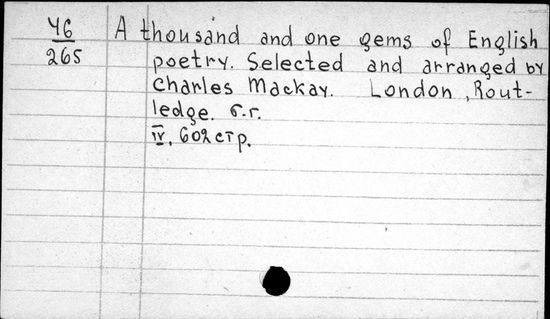 46 A thousand and one gems of English
265 poetry. Selected and arranged by
Charles Mackay. London, Rout-
ledge. б.г.
IV, 602 стр.